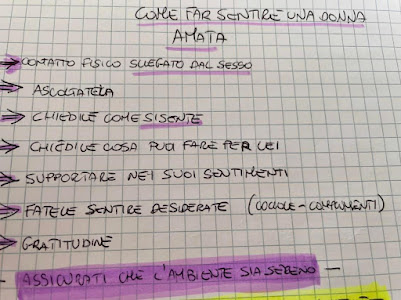 COME FAR SENTIRE UNA DONNA
AMATA
CONTATTO FISICO SLLEGATO DAL SESSO
ASCOLTATELA
CHIEDILE COME SI SENTE
CHIEDILE COSA PUOI FARE PER LEI
SUPPORTARE NEI SUOI SENTIMENTI
FATELE SENTIRE DESIDERATE (COCCOLE-COMPLIMENTI)
GRATITUDINE
- ASSICURATI CHE L'AMBIENTE SIA SERENO -